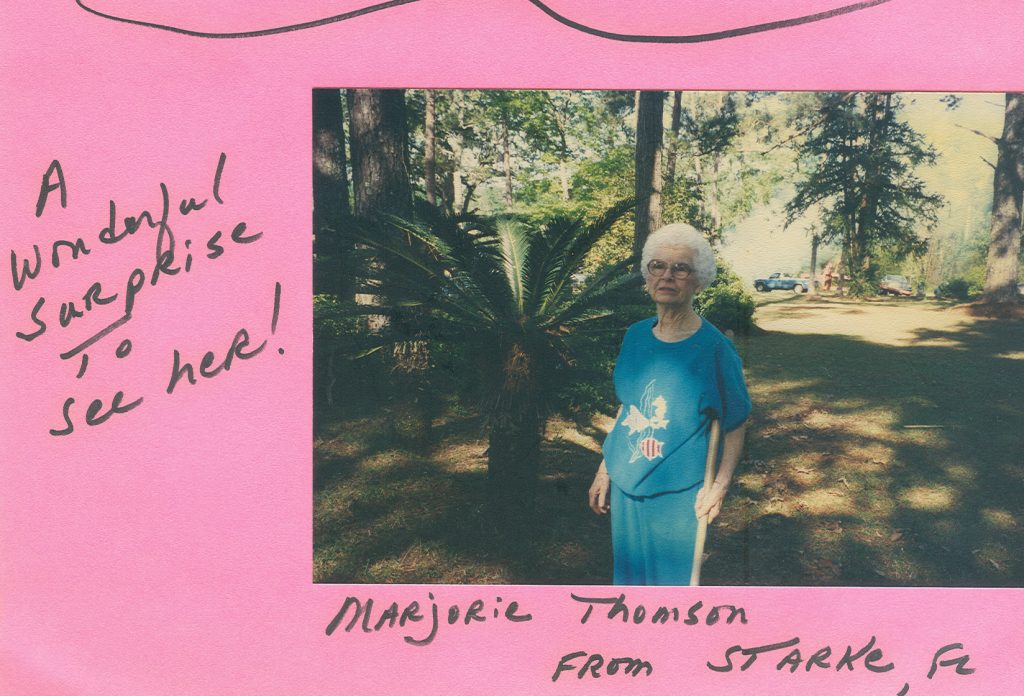 A
Wonderful
Surprise
To
see her!
Marjorie Thomson
From Starke, FL